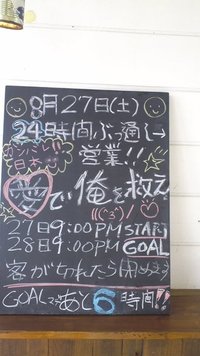 8月27日(土)
24時間ぶっ通し→
営業!!
日本
愛で俺を救え
27日9:00PM START
28日9:00PM GOAL
客が切れたら閉めます
GOALまであと6時間!!